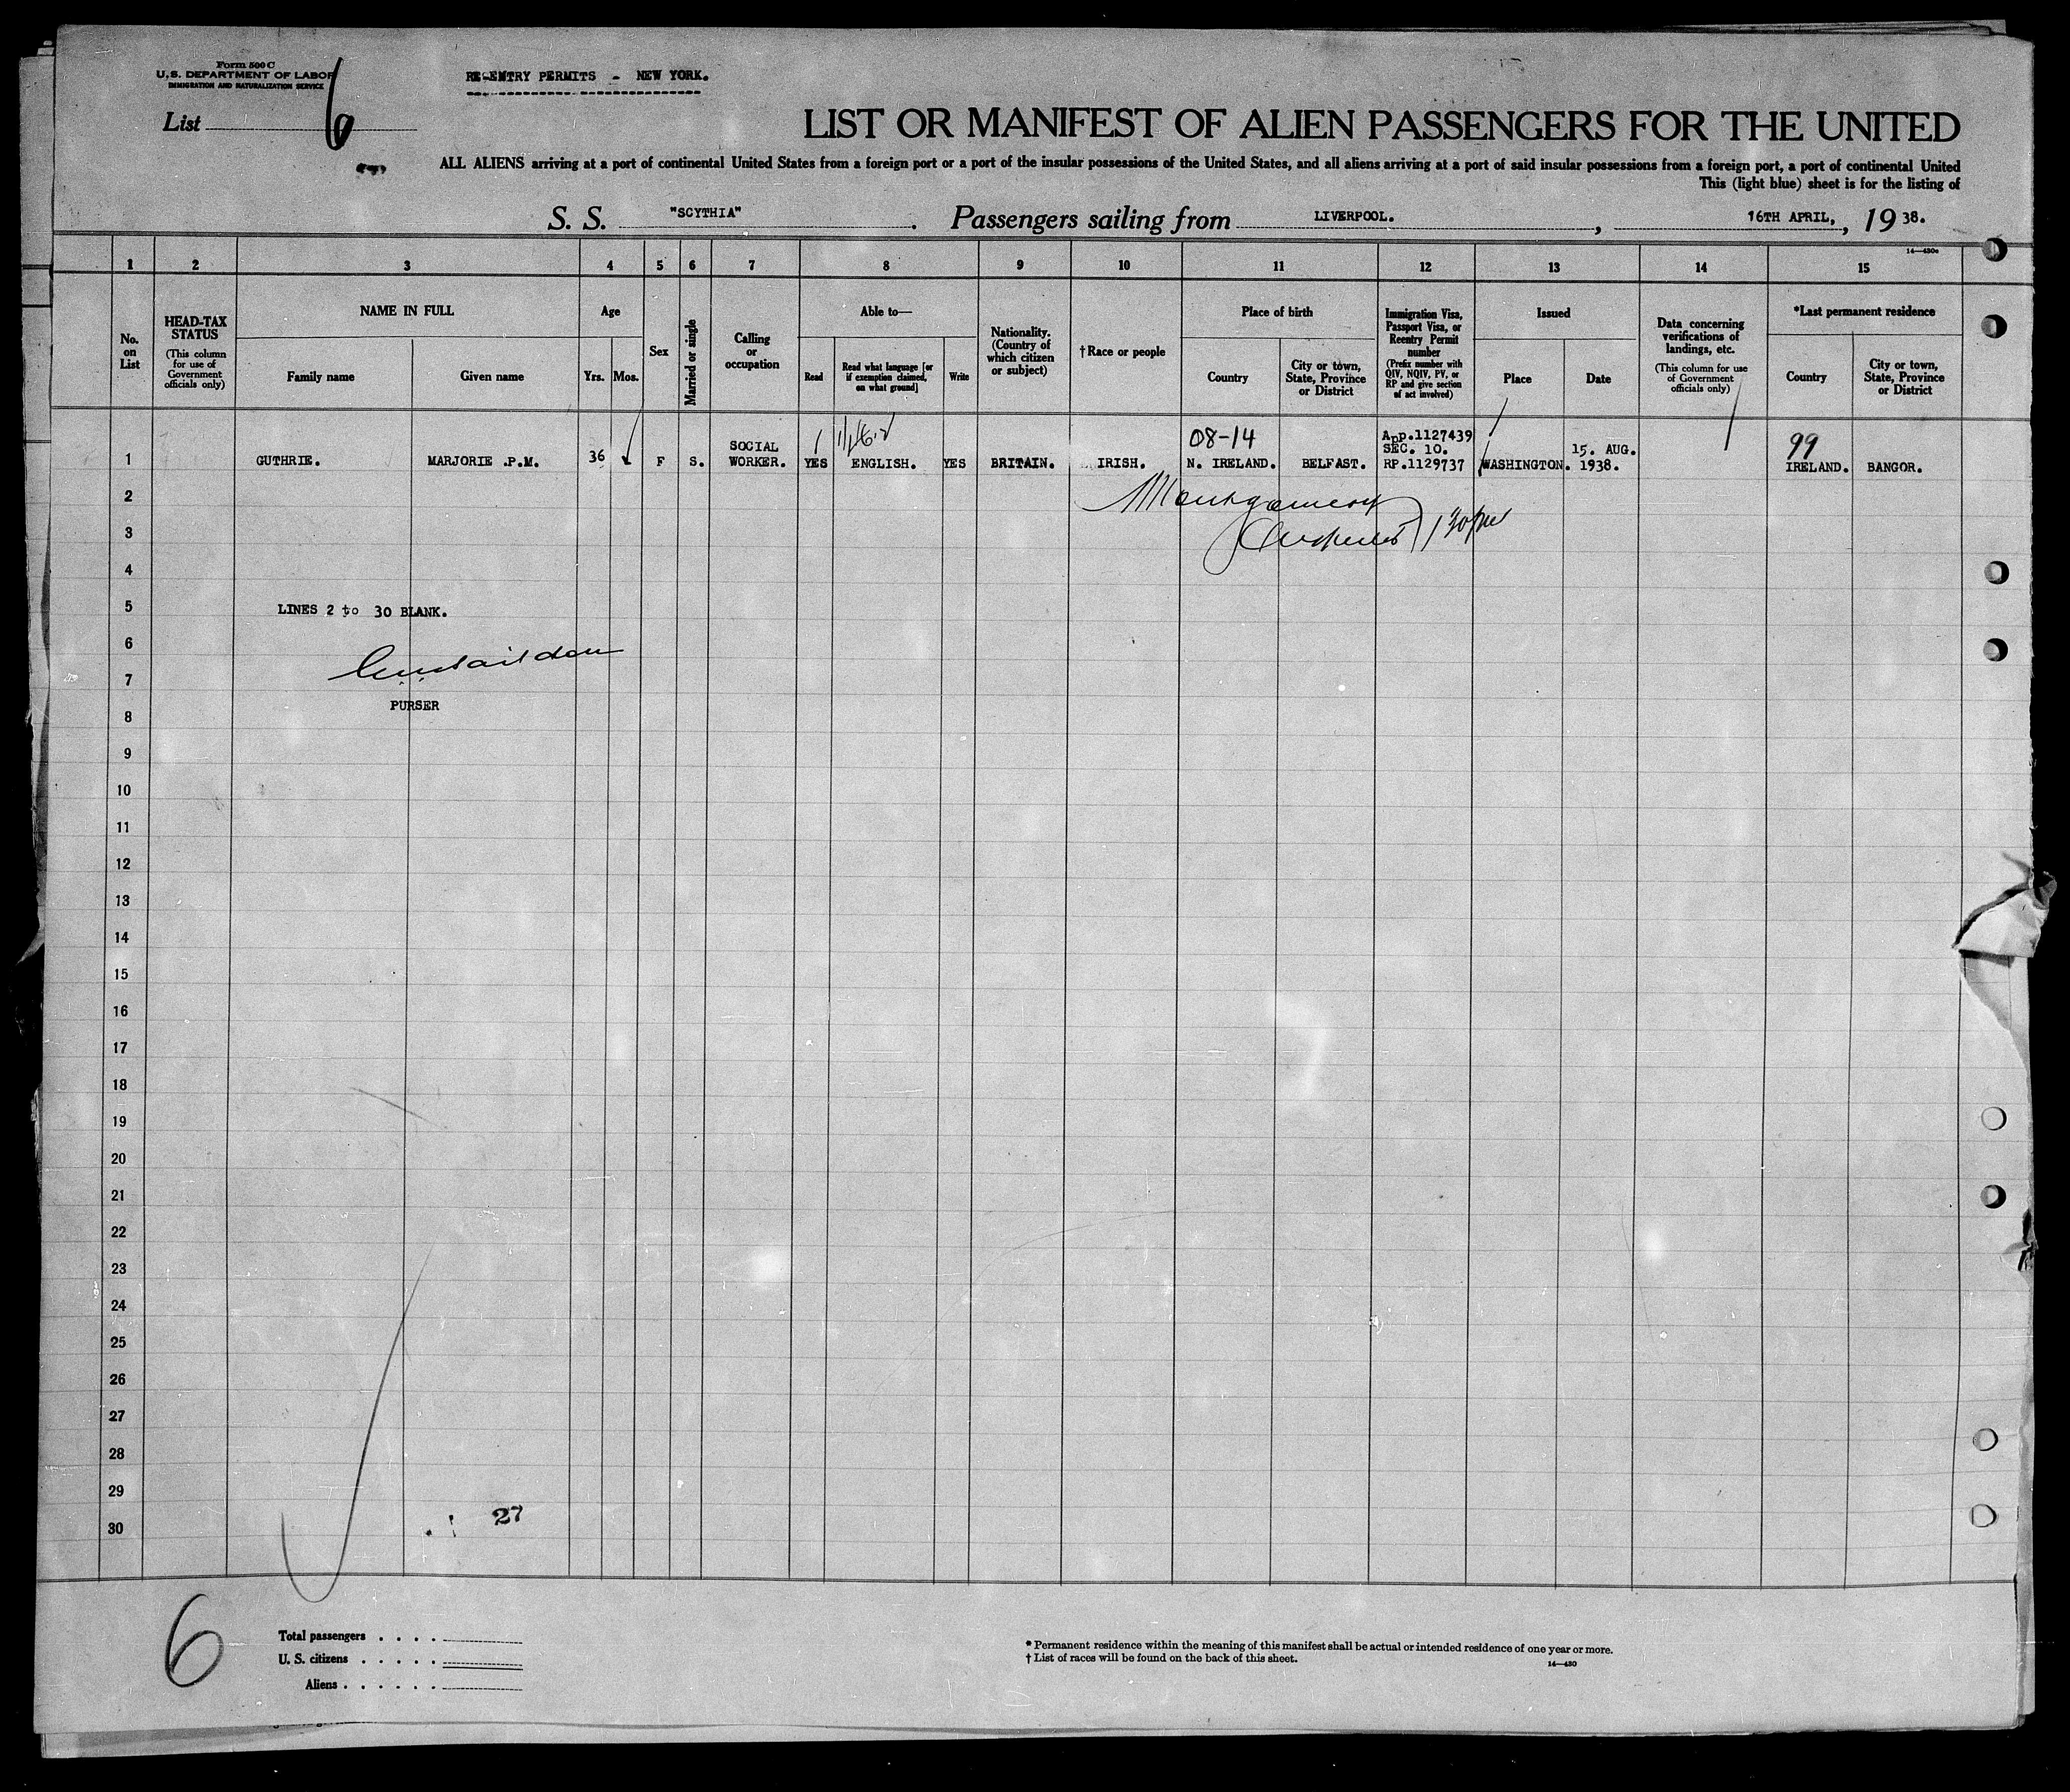 Form 500 C
U.S. DEPARTMENT OF LABOR
IMMIGRATION AND NATURALIZATION SERVICE
RE-ENTRY PERMITS - NEW YORK.
List 6
LIST OR MANIFEST OF ALIEN PASSENGERS FOR THE UNITED
ALL ALIENS arriving at a port of continental United States from a foreign port or a port of the insular possessions of the United States, and all aliens arriving at a port of said insular possessions from a foreign port, a port of continental United
This (light blue) sheet is for the listing of
S. S. "SCYTHIA". Passengers sailing from LIVERPOOL., 16TH APRIL, , 19 38.
14—430c
1 2 3 4 5 6 7 8 9 10 11 12 13 14 15
No. on List
HEAD-TAX STATUS
(This column for use of Government officials only)
NAME IN FULL
Family name
Given name
Age
Yrs.
Mos.
Sex
Married or single
Calling or occupation
Able to—
Read
Read what language [or if exemption claimed, on what ground]
Write
Nationality. (Country of which citizen or subject)
†Race or people
Place of birth
Country
City or town, State, Province or District
Immigration Visa, Passport Visa, or Reentry Permit number
(Prefix number with QIV, NQIV, PV, or RP and give section of act involved)
Issued
Place
Date
Data concerning verifications of landings, etc.
(This column for use of Government officials only)
*Last permanent residence
Country
City or town, State, Province or District
08-14
App.1127439
SEC. 10.
15. AUG.
99
1 GUTHRIE. MARJORIE .P.M. 36 F S. SOCIAL WORKER. YES ENGLISH. YES BRITAIN. IRISH. N. IRELAND. BELFAST. RP.1129737 WASHINGTON. 1938. IRELAND. BANGOR.
2 Montgomery
3
4
5 LINES 2 to 30 BLANK.
6
7
PURSER
8
9
10
11
12
13
14
15
16
17
18
19
20
21
22
23
24
25
26
27
28
29
27
30
6
Total passengers . . . .
U. S. citizens . . . . .
Aliens . . . . . .
* Permanent residence within the meaning of this manifest shall be actual or intended residence of one year or more.
† List of races will be found on the back of this sheet.
14—430